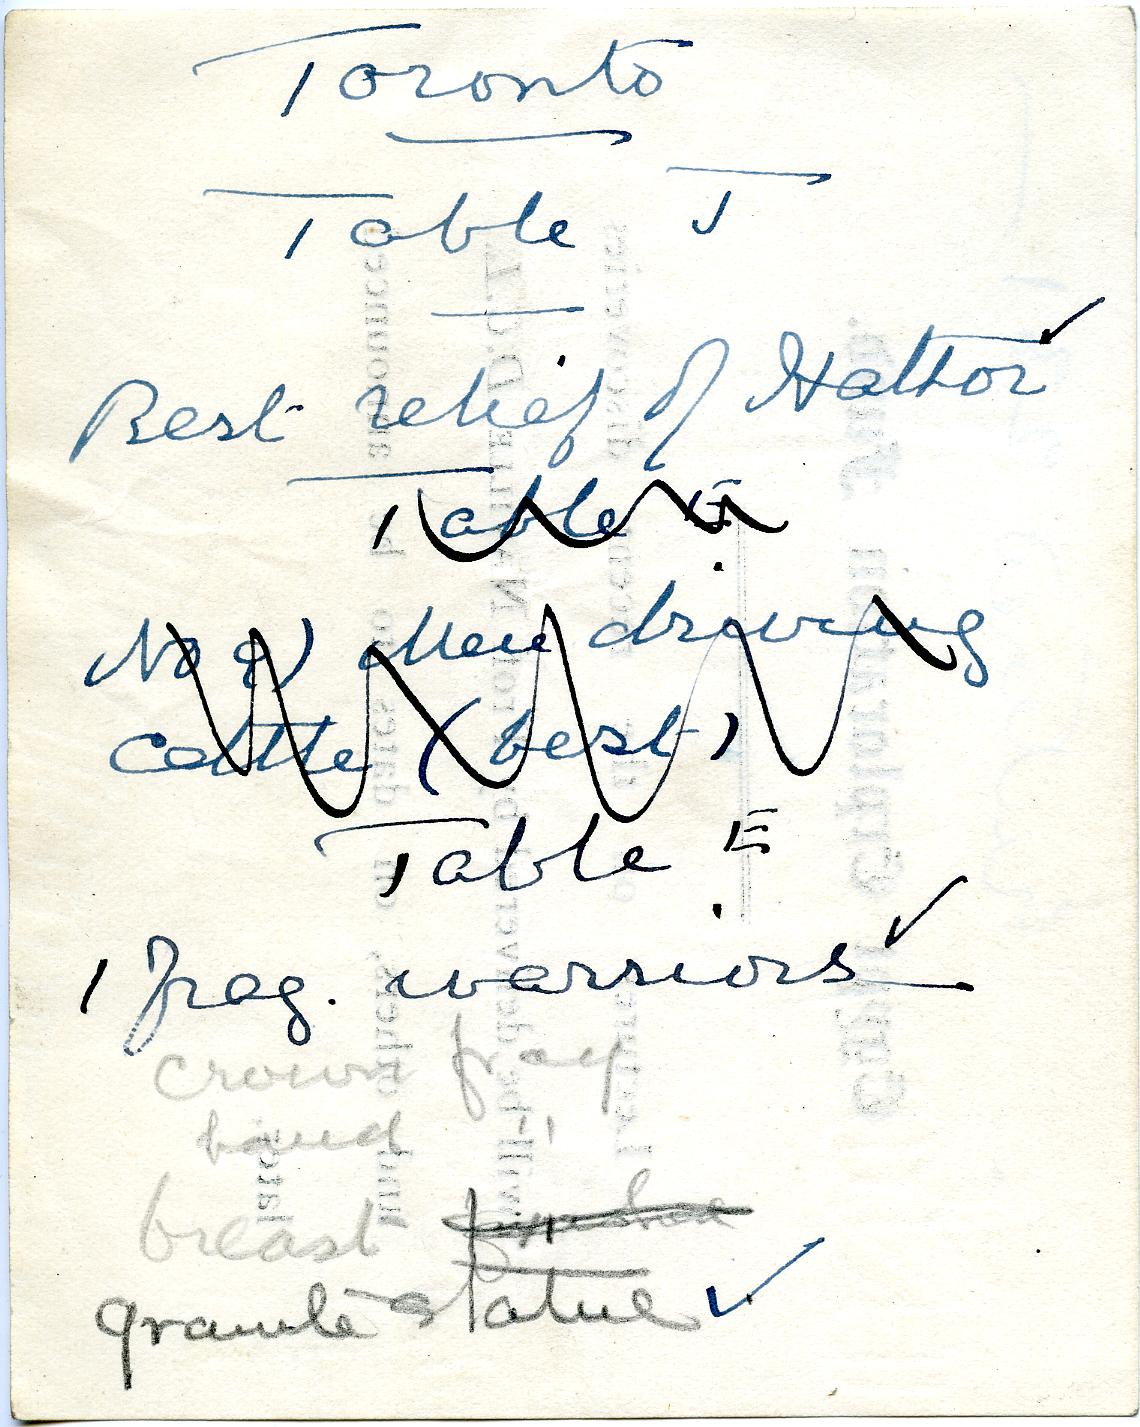 Toronto
Table J
Best relief of Hathor ✓
Table E
No 9) Men driving
cattle (best)
Table E
1 frag. warriors ✓
crown frag
hand 1
breast
granite statue ✓